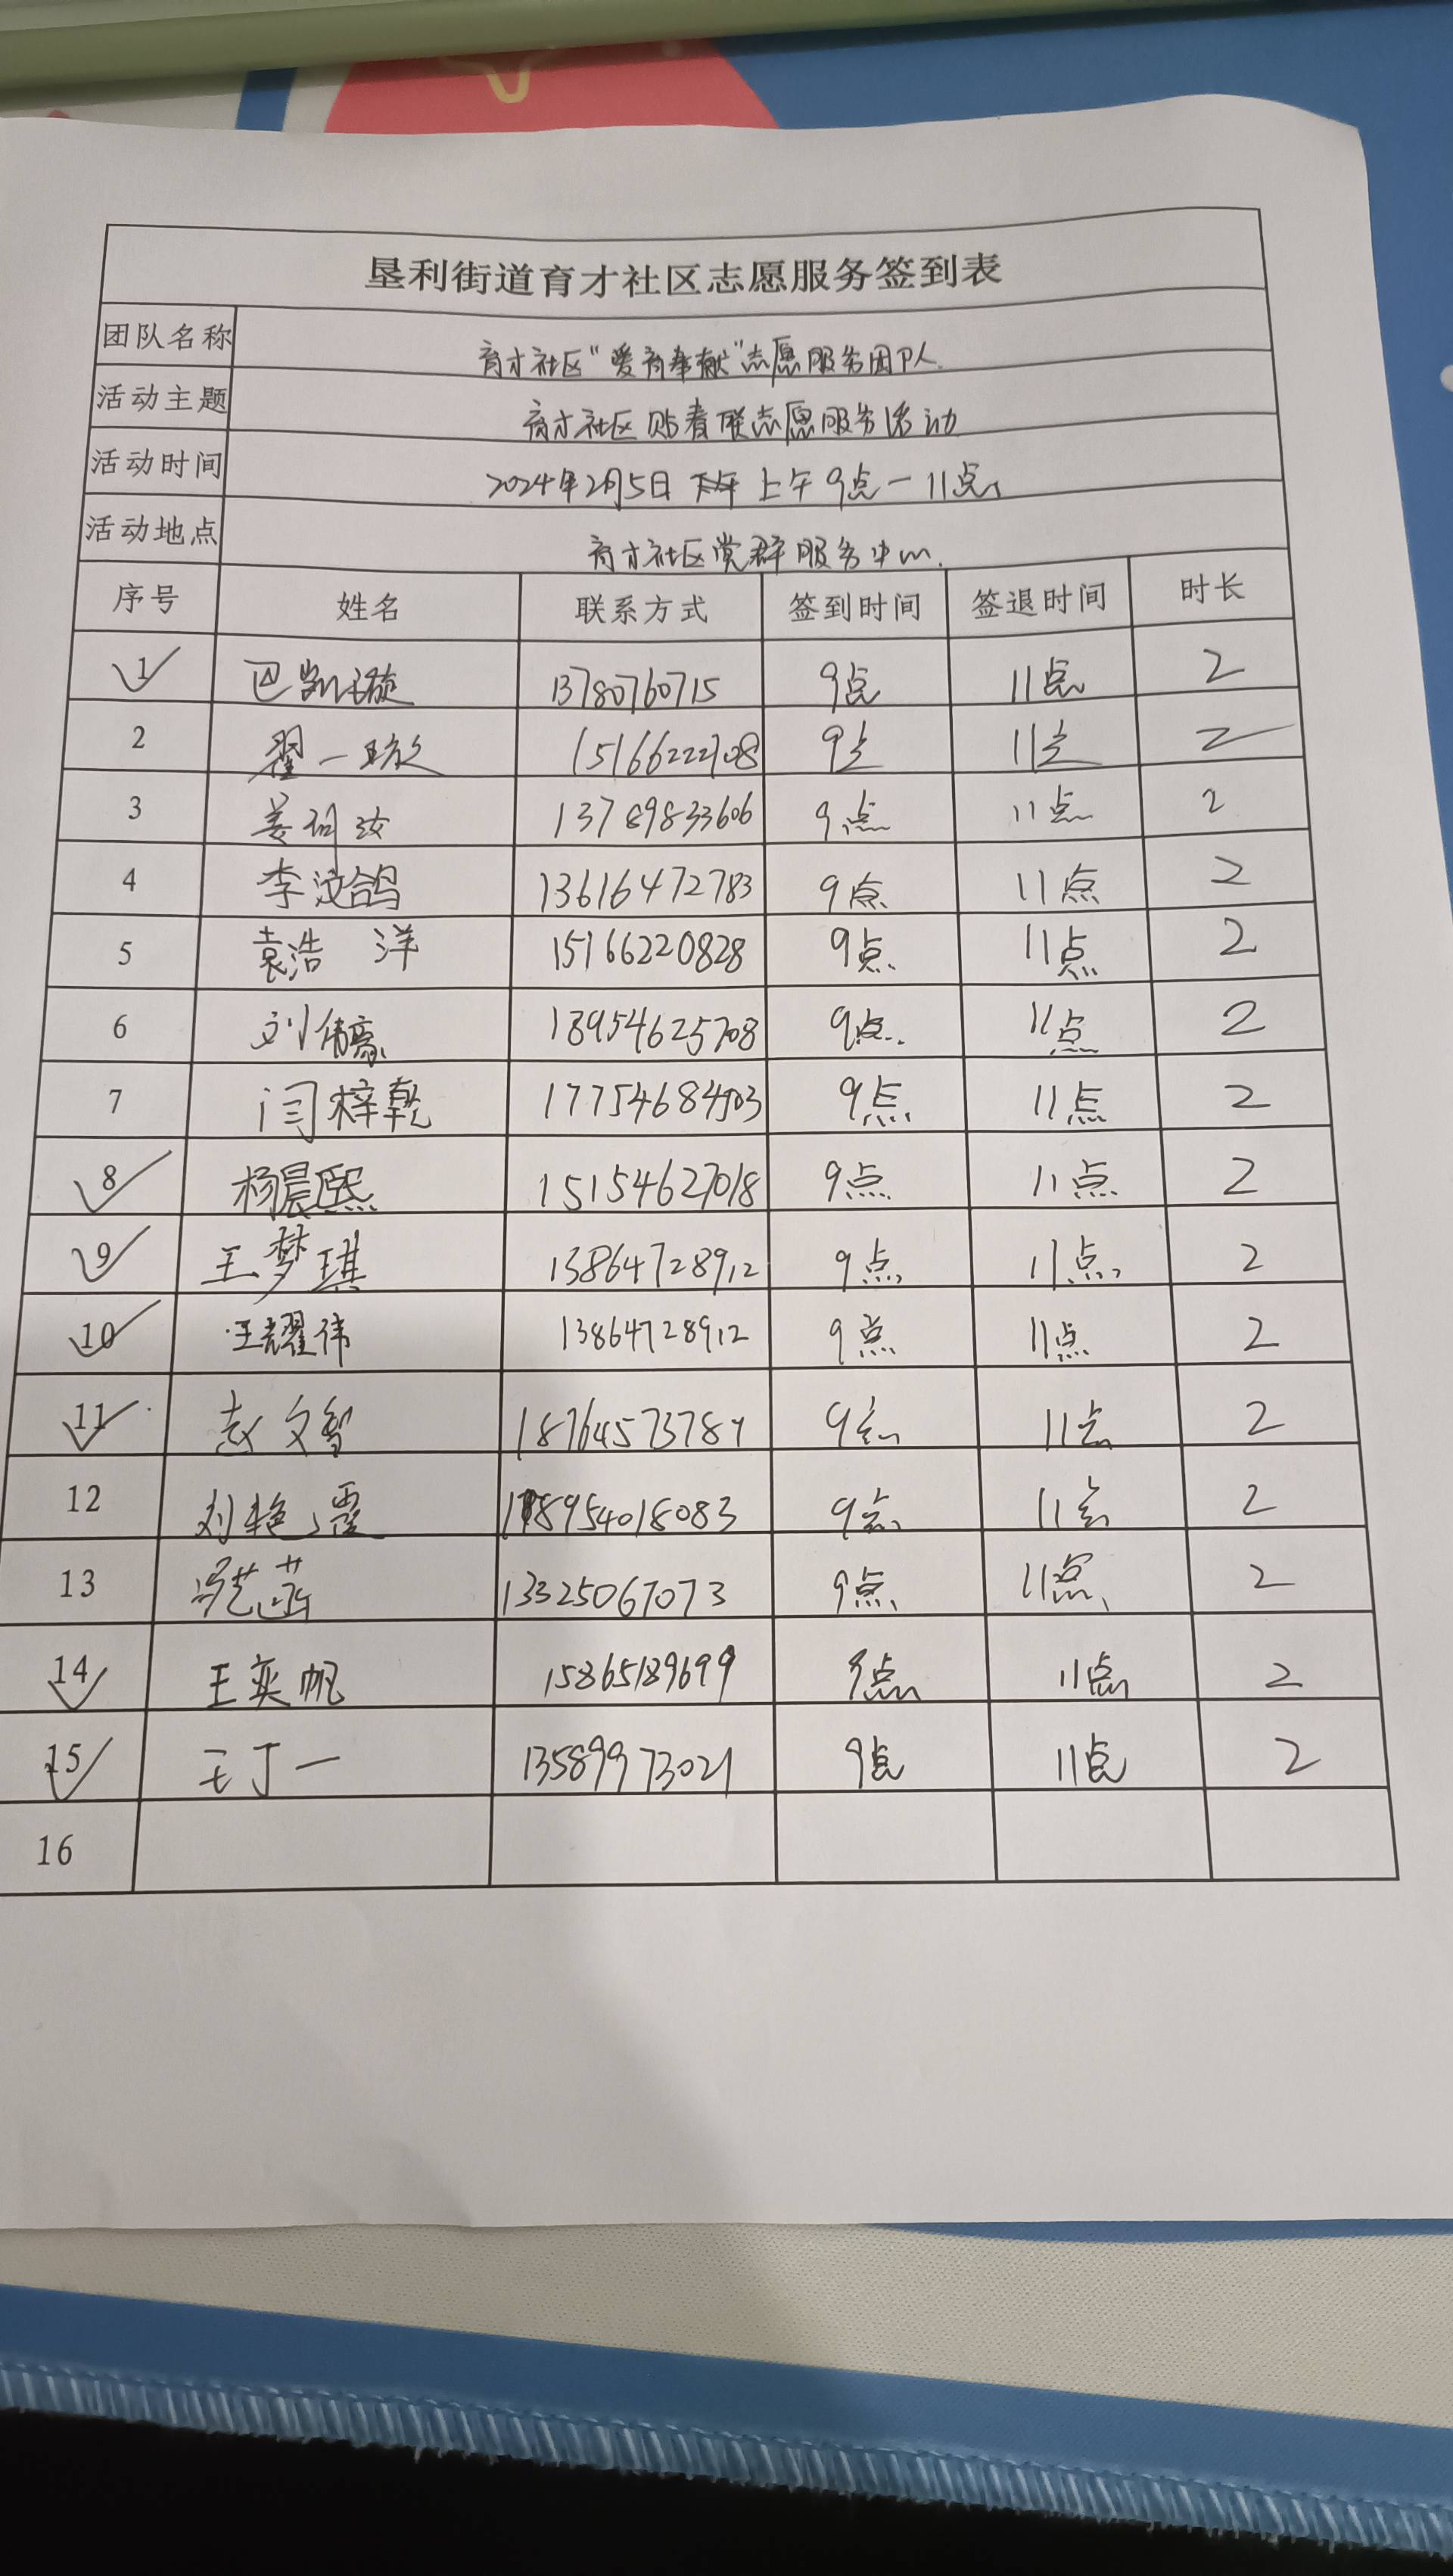 垦利街道育才社区志愿服务签到表
团队名称 育才社区"爱育奉献"志愿服务团队
活动主题 育才社区贴春联志愿服务活动
活动时间 2024年2月5日 上午9点一11点
活动地点 育才社区党群服务中心.
序号 姓名 联系方式 签到时间 签退时间 时长
1 巴凯璇 13780760715 9点 11点 2
2 翟一 9点 11点 2
3 姜 13789833606 9点 11点 2
4 李汶鸽 13616472783 9点 11点 2
5 袁浩洋 15166220828 9点 11点 2
6 刘 18954625708 9点 11点 2
7 闫梓乾 17754684503 9点 11点 2
8 杨晨熙 15154627018 9点 11点 2
9 王梦琪 13864728912 9点 11点 2
10 王耀伟 13864728912 9点 11点 2
11 赵文智 9点 11点 2
12 刘艳霞 18954018083 9点 11点 2
13 冯艺菡 13325067073 9点 11点 2
14 王奕帆 15865189699 9点 11点 2
15 王丁一 13589973021 9点 11点 2
16